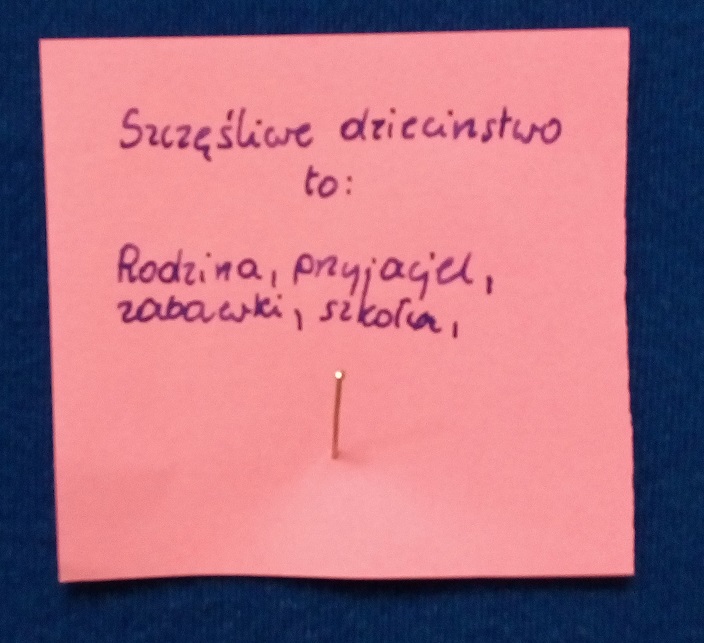 Szczęśliwe dzieciństwo
to:
Rodzina, przyjaciel,
zabawki, szkoła,